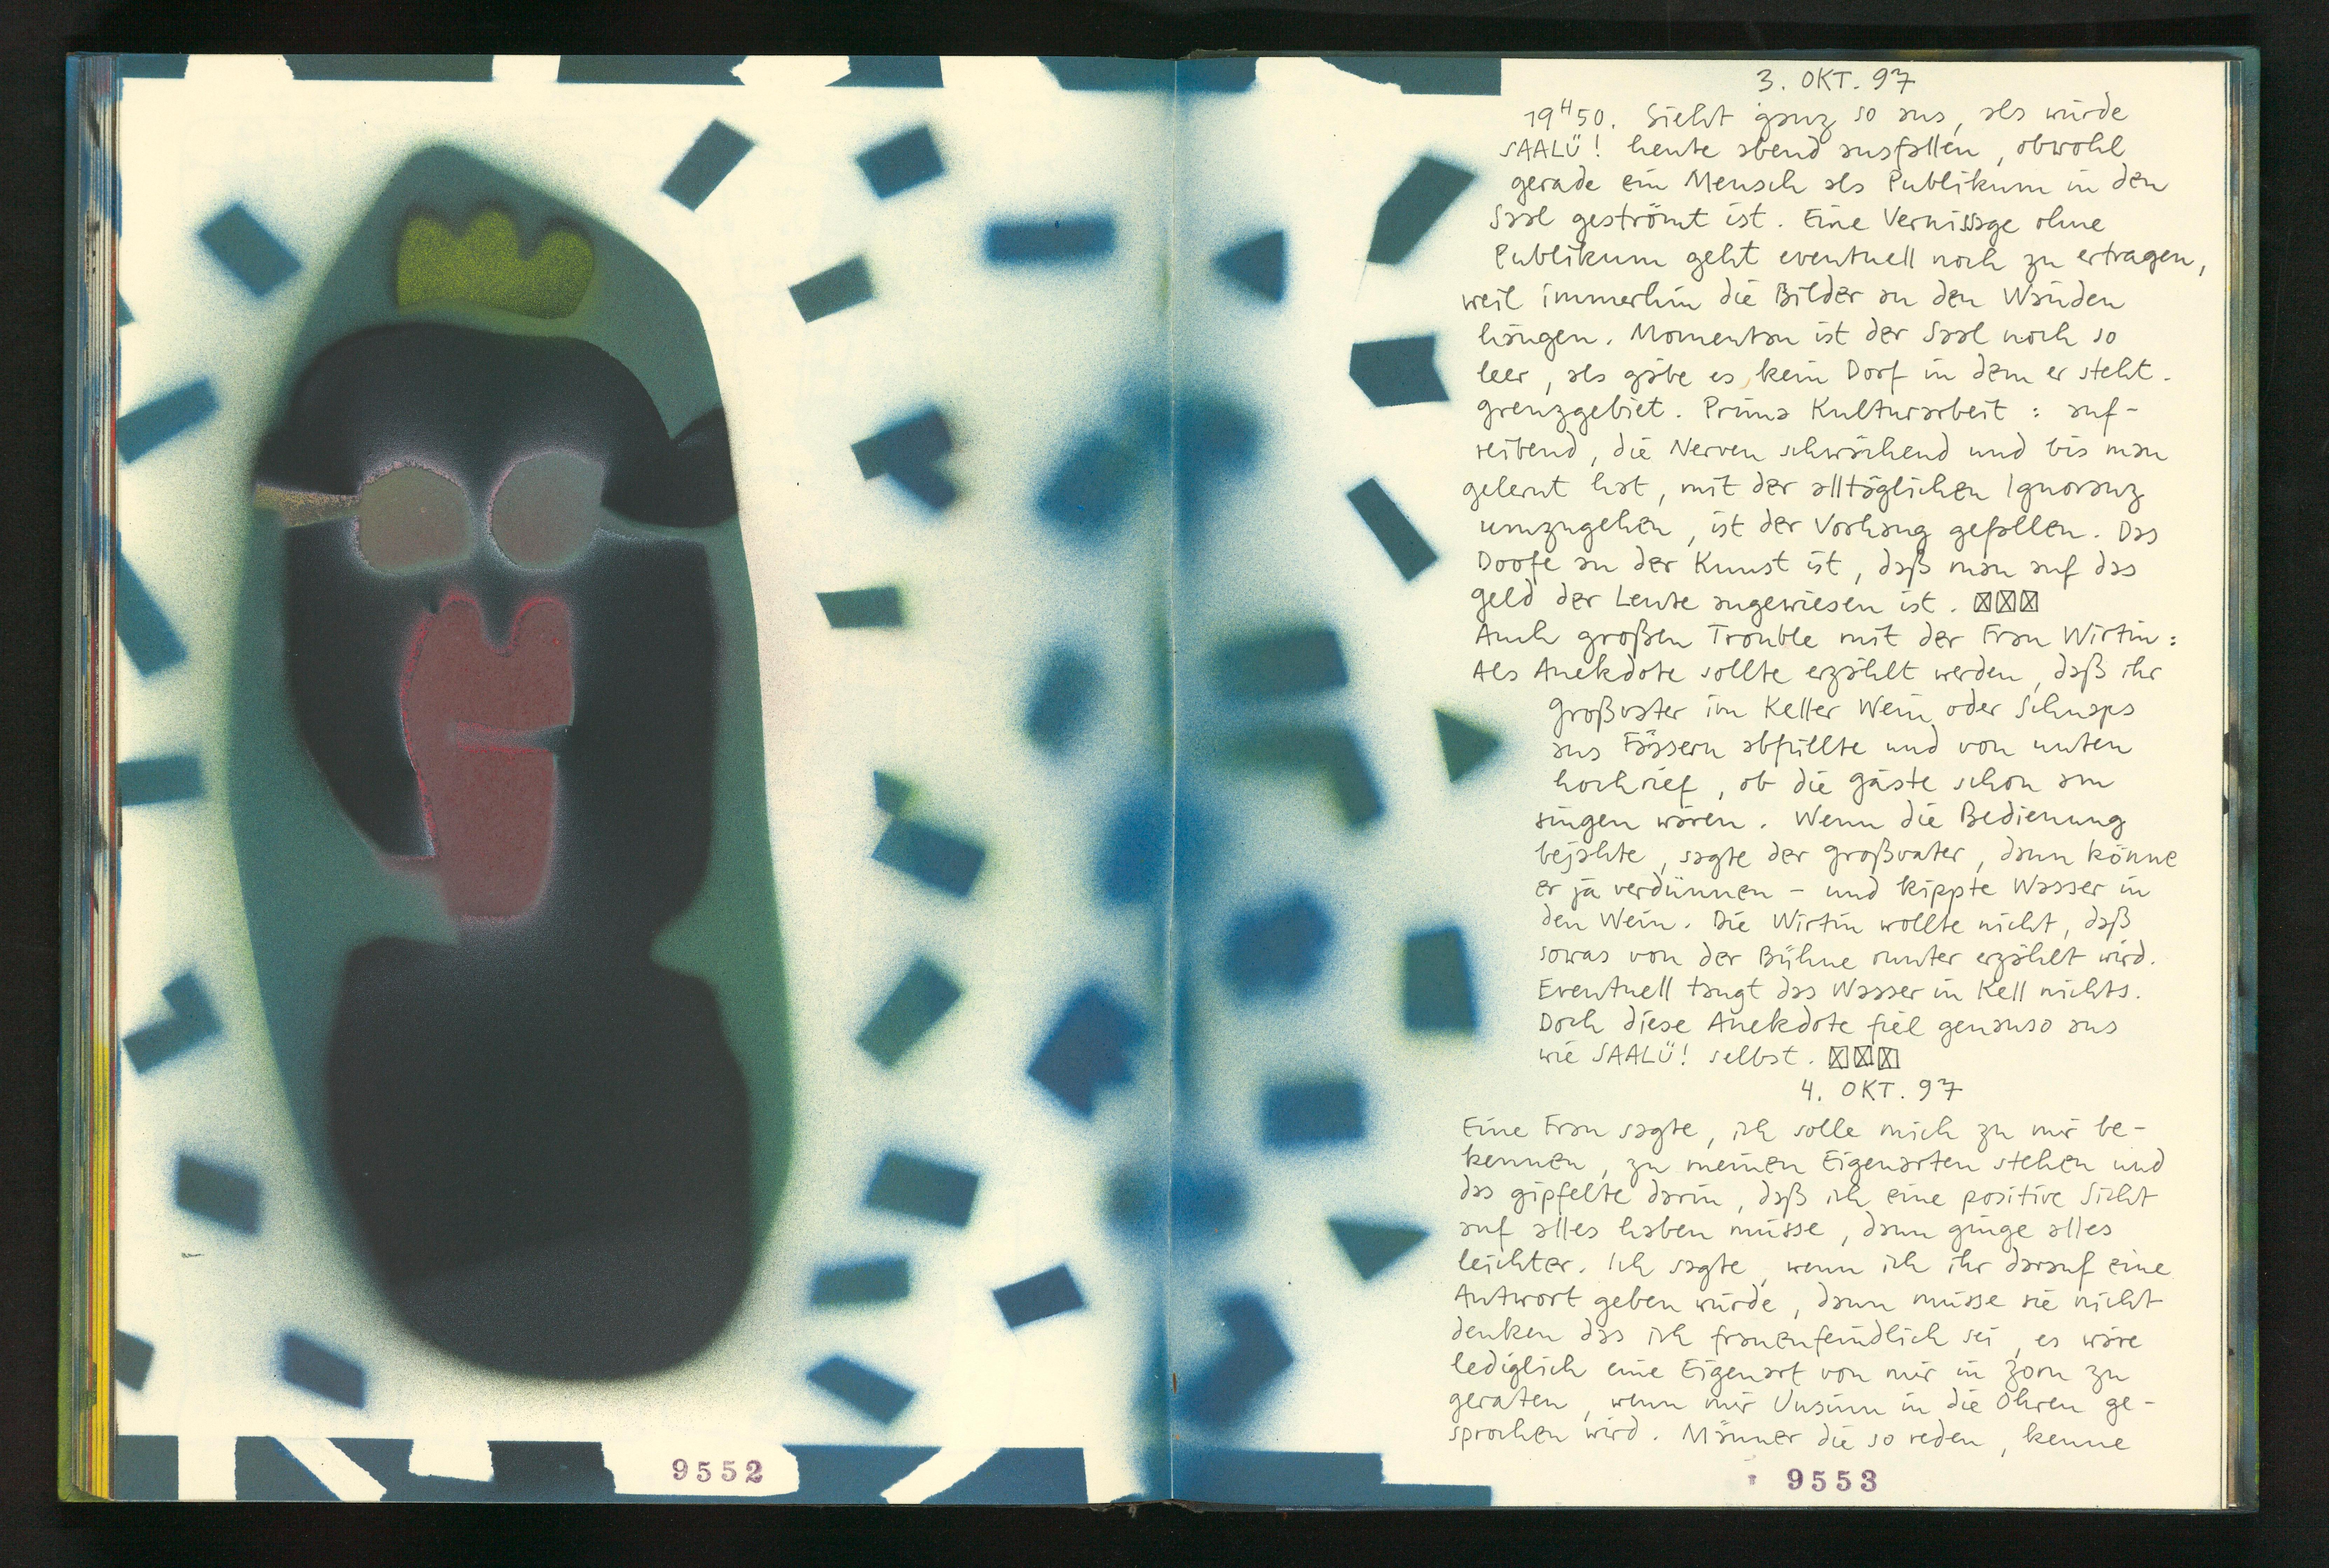 3. OKT. 97
19H50. Sieht ganz so aus, als würde
SAALÜ! heute abend ausfallen, obwohl
gerade ein Mensch als Publikum in den
Saal geströmt ist. Eine Vernissage ohne
Publikum geht eventuell noch zu ertragen,
weil immerhin die Bilder an den Wänden
hängen. Momentan ist der Saal noch so
leer, als gäbe es kein Dorf in dem er steht.
Grenzgebiet. Prima Kulturarbeit: auf-
reibend, die Nerven schwächend und bis man
gelernt hat, mit der alltäglichen Ignoranz
umzugehen, ist der Vorhang gefallen. Das
Doofe an der Kunst ist, daß man auf das
Geld der Leute angewiesen ist. ☒☒☒
Auch großen Trouble mit der Frau Wirtin:
Als Anekdote sollte erzählt werden, daß ihr
Großvater im Keller Wein oder Schnaps
aus Fässern abfüllte und von unten
hochrief, ob die Gäste schon am
singen wären. Wenn die Bedienung
bejahte, sagte der Großvater, dann könne
er ja verdünnen - und kippte Wasser in
den Wein. Die Wirtin wollte nicht, daß
sowas von der Bühne runter erzählt wird.
Eventuell taugt das Wasser in Kell nichts.
Doch diese Anekdote fiel genauso aus
wie SAALÜ! selbst. ☒☒☒
4. OKT. 97
Eine Frau sagte, ich solle mich zu mir be-
kennen, zu meinen Eigenarten stehen und
das gipfelte darin, daß ich eine positive Sicht
auf alles haben müsse, dann ginge alles
leichter. Ich sagte, wenn ich ihr darauf eine
Antwort geben würde, dann müsse sie nicht
denken das ich frauenfeindlich sei, es wäre
lediglich eine Eigenart von mir in Zorn zu
geraten, wenn mir Unsinn in die Ohren ge-
sprochen wird. Männer die so reden, kenne
9552
9553